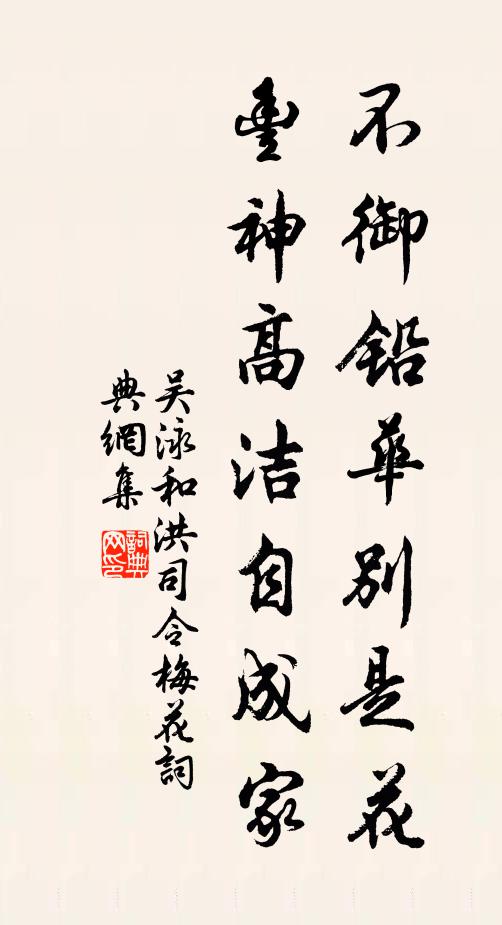 不御铅华别是花
丰神高洁自成家
吴泳和洪司令梅花詞
典網集
詞典网印